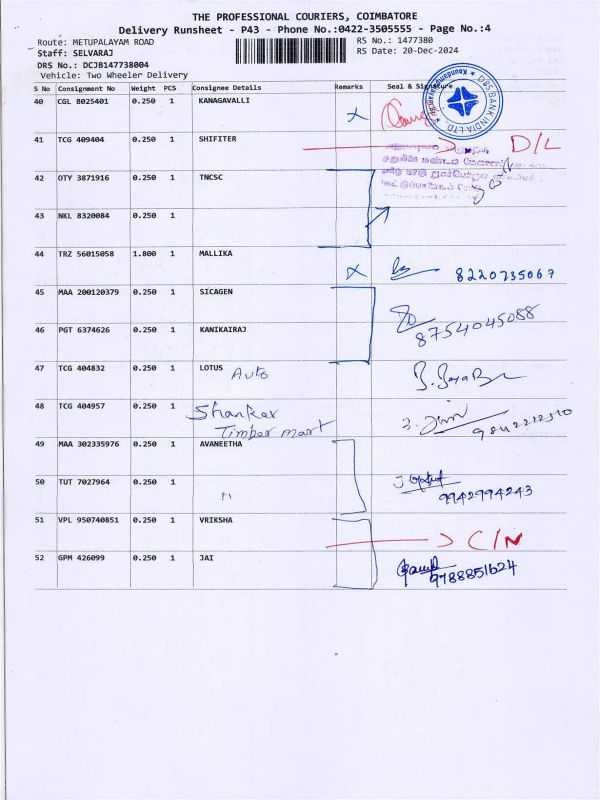 THE PROFESSIONAL COURIERS, COIMBATORE
Delivery Runsheet - P43 - Phone No.:0422-3505555 - Page No.:4
Route: METUPALAYAM ROAD RS No.: 1477380
Staff: SELVARAJ RS Date: 20-Dec-2024
DRS No.: DCJB147738004
Vehicle: Two Wheeler Delivery
S No Consignment No Weight PCS Consignee Details Remarks Seal & Signature
40 CGL 8025401 0.250 1 KANAGAVALLI X
DBS BANK INDIA LTD.
41 TCG 409404 0.250 1 SHIFITER D/L
42 OTY 3871916 0.250 1 TNCSC
43 NKL 8320084 0.250 1
44 TRZ 56015058 1.800 1 MALLIKA X 8220735067
45 MAA 200120379 0.250 1 SICAGEN
46 PGT 6374626 0.250 1 KANIKAIRAJ 8754045088
47 TCG 404832 0.250 1 LOTUS Auto
48 TCG 404957 0.250 1 Shankar Timber mart
49 MAA 302335976 0.250 1 AVANEETHA
50 TUT 7027964 0.250 1 " 9942994243
51 VPL 950740851 0.250 1 VRIKSHA C/N
52 GPM 426099 0.250 1 JAI 9788851624